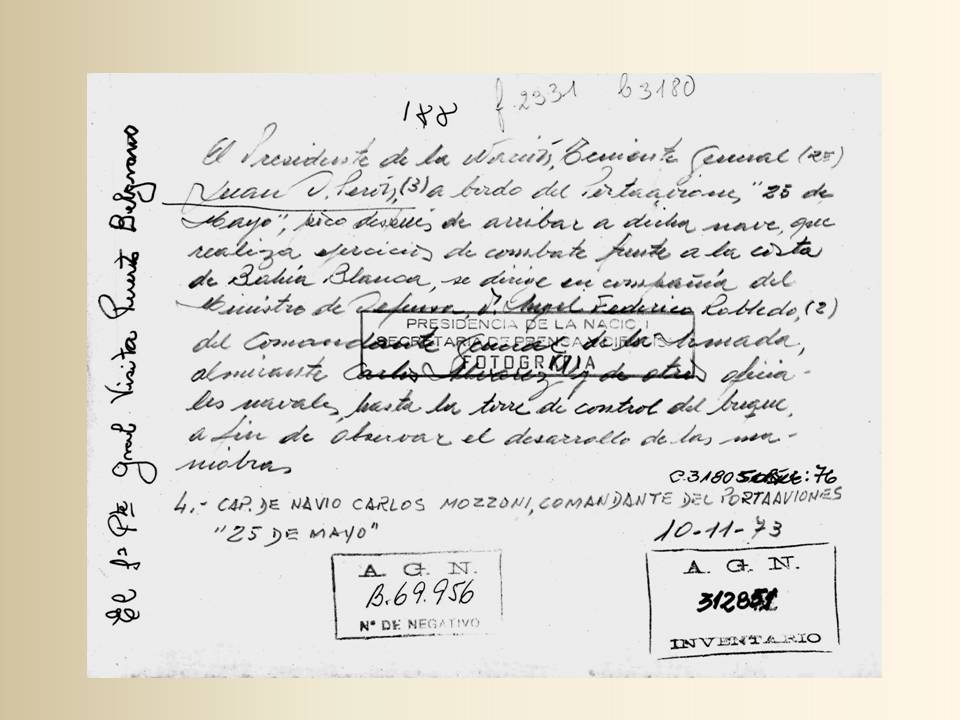 f.2331 b3180
188
El Presidente de la Nación, Teniente General (RE)
Juan D. Perón, (3) a bordo del Portaaviones "25 de
Mayo", poco después de arribar a dicha nave, que
realiza ejercicios de combate frente a la costa
de Bahía Blanca, se dirige en compañía del
Ministro de Defensa, D. Angel Federico Robledo, (2)
del Comandante General de la Armada,
almirante Carlos Alvarez y de otros oficia-
les navales, hasta la torre de control del buque,
a fin de observar el desarrollo de las ma-
niobras
PRESIDENCIA DE LA NACION
SECRETARIA DE PRENSA Y DIFUSION
FOTOGRAFIA
C.3180 :76
4.- CAP. DE NAVIO CARLOS MOZZONI, COMANDANTE DEL PORTAAVIONES
"25 DE MAYO"
10-11-73
A. G. N.
B.69.956
N° DE NEGATIVO
A. G. N.
INVENTARIO
El Sr Pte Gral Visita Puerto Belgrano